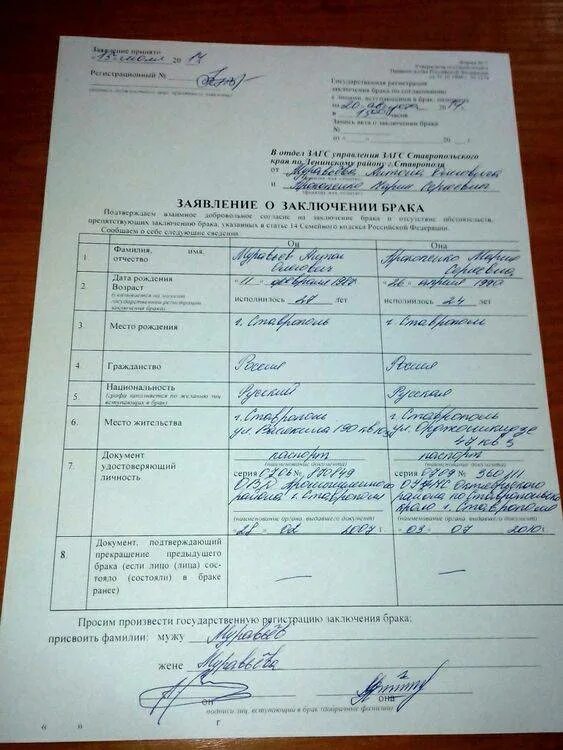 Заявление принято
15 июля 2014
Регистрационный №
Форма № 7
Государственная регистрация
заключения брака по согласованию
с лицами, вступающими в брак, назначена
на 20 августа 2014 г.
в часов
Запись акта о заключении брака
№
от « » 20 г.
В отдел ЗАГС управления ЗАГС Ставропольского
края по Ленинскому району г.Ставрополя
от Муравьёва Антона Олеговича
и Прокопенко Марии Сергеевны
ЗАЯВЛЕНИЕ О ЗАКЛЮЧЕНИИ БРАКА
Подтверждаем взаимное добровольное согласие на заключение брака и отсутствие обстоятельств,
препятствующих заключению брака, указанных в статье 14 Семейного кодекса Российской Федерации.
Сообщаем о себе следующие сведения:
Он Она
1 Фамилия, имя, отчество Муравьев Антон Олегович Прокопенко Мария Сергеевна
2. Дата рождения "11" февраля "26" апреля 1990
Возраст исполнилось 28 лет исполнилось 24 лет
(указывается на момент государственной регистрации заключения брака)
3 Место рождения г. Ставрополь г. Ставрополь
4 Гражданство Россия Россия
5. Национальность Русский Русская
(графа заполняется по желанию лиц вступающих в брак)
6. Место жительства г. Ставрополь г. Ставрополь
ул. 190 кв ул. Орджоникидзе
47 кв 5
7. Документ удостоверяющий личность паспорт паспорт
(наименование документа) (наименование документа)
серия 0706 № серия 0709 №
ОВД Промышленного ОУФМС Октябрьского
района г. Ставрополя района по Ставропольскому
краю г. Ставрополя
(наименование органа, выдавшего документ) (наименование органа, выдавшего документ)
"28" 02 2007 г "03" 07 2010 г.
8. Документ, подтверждающий
прекращение предыдущего
брака (если лицо (лица) сос-
тояло (состояли) в браке
ранее) — —
Просим произвести государственную регистрацию заключения брака:
присвоить фамилии: мужу Муравьёв
жене Муравьёва
он она
подписи лиц, вступающих в брак (добрачные фамилии)
« » г